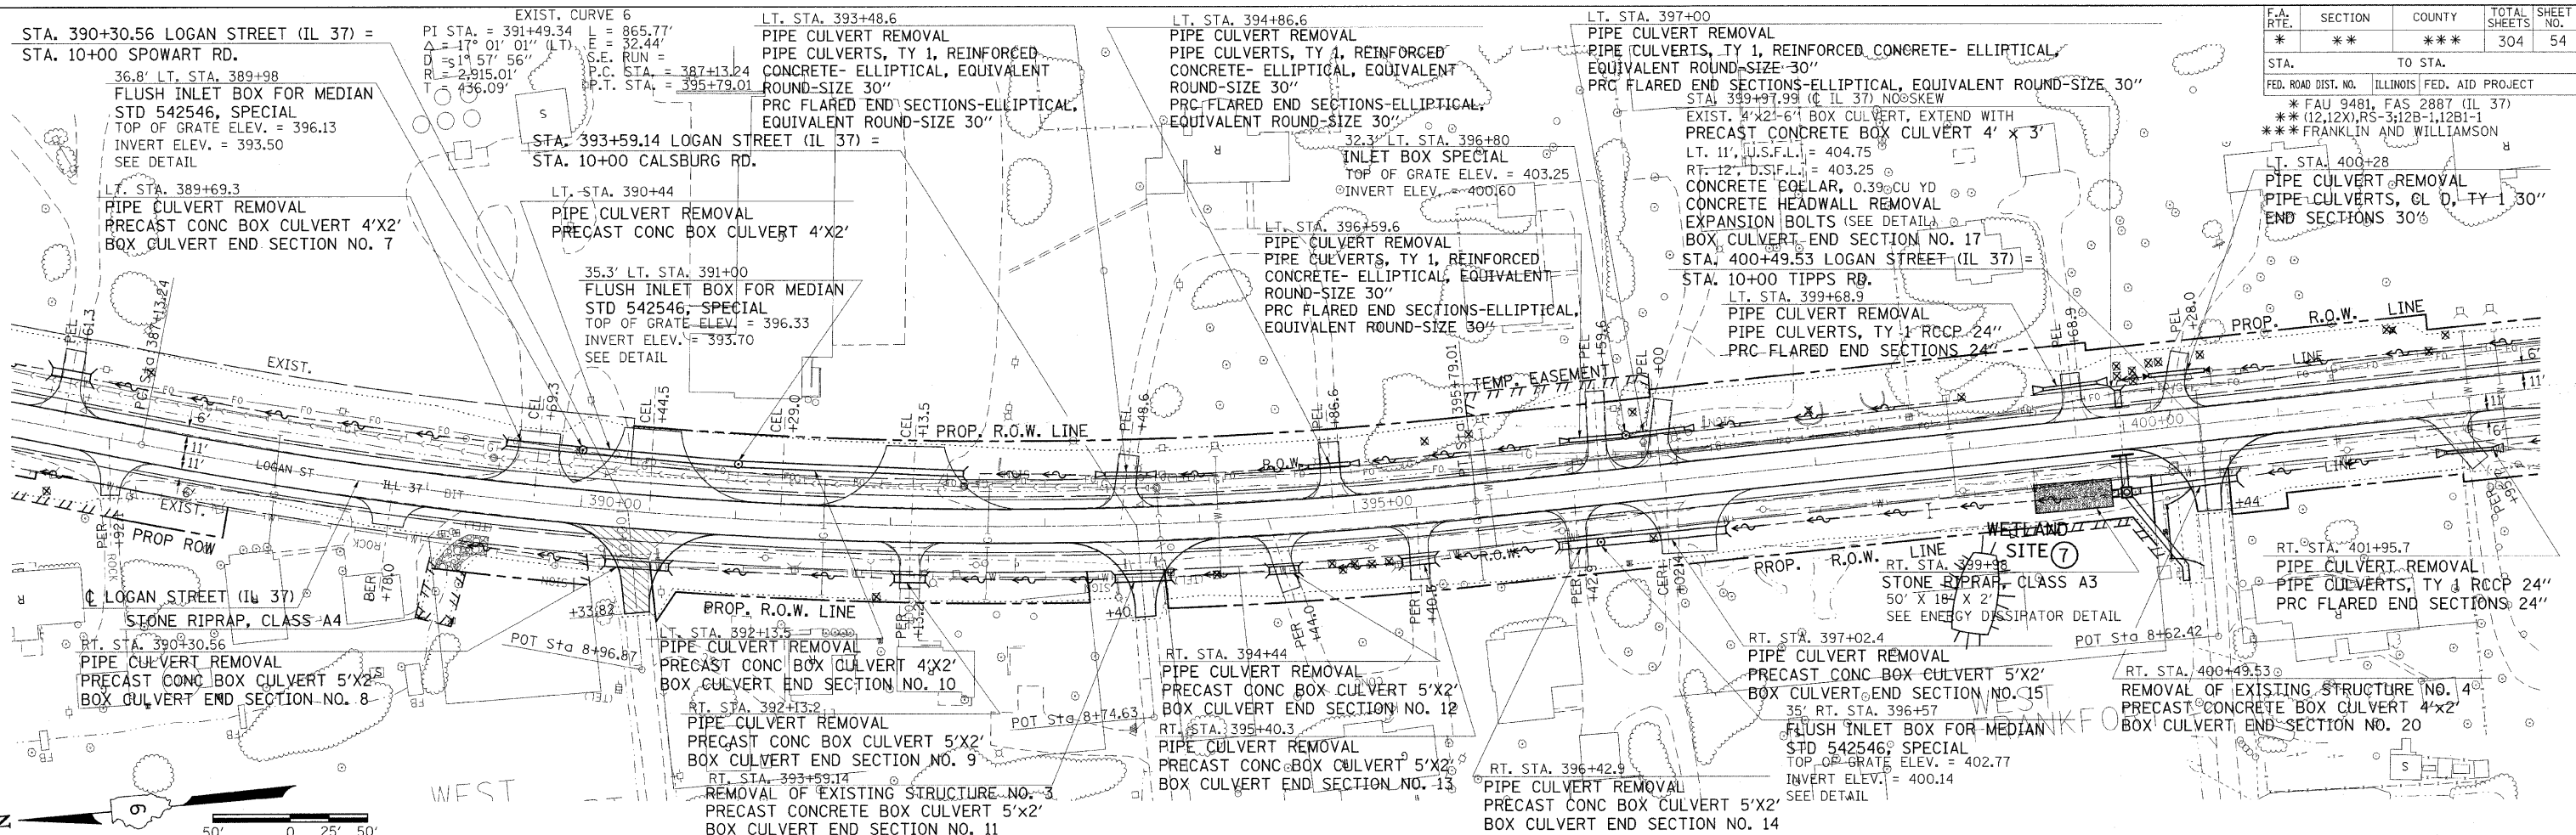 STA. 390+30.56 LOGAN STREET (IL 37) =
STA. 10+00 SPOWART RD.
36.8' LT. STA. 389+98
FLUSH INLET BOX FOR MEDIAN
STD 542546, SPECIAL
TOP OF GRATE ELEV. = 396.13
INVERT ELEV. = 393.50
SEE DETAIL
LT. STA. 389+69.3
PIPE CULVERT REMOVAL
PRECAST CONC BOX CULVERT 4'X2'
BOX CULVERT END SECTION NO. 7
EXIST. CURVE 6
PI STA. = 391+49.34 L = 865.77'
Δ = 17° 01' 01" (LT) E = 32.44'
D = 1° 57' 56" S.E. RUN =
R = 2,915.01' P.C. STA. = 387+13.24
T = 436.09' P.T. STA. = 395+79.01
LT. STA. 393+48.6
PIPE CULVERT REMOVAL
PIPE CULVERTS, TY 1, REINFORCED
CONCRETE- ELLIPTICAL, EQUIVALENT
ROUND-SIZE 30"
PRC FLARED END SECTIONS-ELLIPTICAL,
EQUIVALENT ROUND-SIZE 30"
STA. 393+59.14 LOGAN STREET (IL 37) =
STA. 10+00 CALSBURG RD.
LT. STA. 390+44
PIPE CULVERT REMOVAL
PRECAST CONC BOX CULVERT 4'X2'
35.3' LT. STA. 391+00
FLUSH INLET BOX FOR MEDIAN
STD 542546, SPECIAL
TOP OF GRATE ELEV. = 396.33
INVERT ELEV. = 393.70
SEE DETAIL
LT. STA. 394+86.6
PIPE CULVERT REMOVAL
PIPE CULVERTS, TY 1, REINFORCED
CONCRETE- ELLIPTICAL, EQUIVALENT
ROUND-SIZE 30"
PRC FLARED END SECTIONS-ELLIPTICAL,
EQUIVALENT ROUND-SIZE 30"
32.3' LT. STA. 396+80
INLET BOX SPECIAL
TOP OF GRATE ELEV. = 403.25
INVERT ELEV. = 400.60
LT. STA. 396+59.6
PIPE CULVERT REMOVAL
PIPE CULVERTS, TY 1, REINFORCED
CONCRETE- ELLIPTICAL, EQUIVALENT
ROUND-SIZE 30"
PRC FLARED END SECTIONS-ELLIPTICAL,
EQUIVALENT ROUND-SIZE 30"
LT. STA. 397+00
PIPE CULVERT REMOVAL
PIPE CULVERTS, TY 1, REINFORCED CONCRETE- ELLIPTICAL,
EQUIVALENT ROUND-SIZE 30"
PRC FLARED END SECTIONS-ELLIPTICAL, EQUIVALENT ROUND-SIZE 30"
STA. 399+97.99 (℄ IL 37) NO SKEW
EXIST. 4'x2'-6" BOX CULVERT, EXTEND WITH
PRECAST CONCRETE BOX CULVERT 4' x 3'
LT. 11', U.S.F.L. = 404.75
RT. 12', D.S.F.L. = 403.25
CONCRETE COLLAR, 0.39 CU YD
CONCRETE HEADWALL REMOVAL
EXPANSION BOLTS (SEE DETAIL)
BOX CULVERT END SECTION NO. 17
STA. 400+49.53 LOGAN STREET (IL 37) =
STA. 10+00 TIPPS RD.
LT. STA. 399+68.9
PIPE CULVERT REMOVAL
PIPE CULVERTS, TY 1 RCCP 24"
PRC FLARED END SECTIONS 24"
F.A. RTE. SECTION COUNTY TOTAL SHEETS SHEET NO.
* ** *** 304 54
STA. TO STA.
FED. ROAD DIST. NO. ILLINOIS FED. AID PROJECT
* FAU 9481, FAS 2887 (IL 37)
** (12,12X),RS-3;12B-1,12B1-1
*** FRANKLIN AND WILLIAMSON
LT. STA. 400+28
PIPE CULVERT REMOVAL
PIPE CULVERTS, CL D, TY 1 30"
END SECTIONS 30"
PEL +61.3
PC Sta 387+13.24
EXIST.
CEL +69.3
CEL +44.5
CEL +29.0
CEL +13.5
PROP. R.O.W. LINE
PEL +48.6
PEL +86.6
R.O.W.
PT Sta 395+79.01
TEMP. EASEMENT
PEL +59.6
PEL +00
PEL +68.9
PEL +28.0
PROP. R.O.W. LINE
LINE
6'
11'
11'
6'
6'
11'
11'
6'
LOGAN ST
ILL 37 BIT
390+00
395+00
400+00
EXIST.
PROP ROW
PER +92.1
ROCK
ROCK
BER +78.0
+33.82
PROP. R.O.W. LINE
PER +13.2
+40
PER +44.0
PER +40.3
R.O.W.
PER +42.9
CER +02.4
PROP. R.O.W. LINE
LINE
+44
PER +95.7
WETLAND
SITE 7
℄ LOGAN STREET (IL 37)
STONE RIPRAP, CLASS A4
RT. STA. 390+30.56
PIPE CULVERT REMOVAL
PRECAST CONC BOX CULVERT 5'X2'
BOX CULVERT END SECTION NO. 8
POT Sta 8+96.87
LT. STA. 392+13.5
PIPE CULVERT REMOVAL
PRECAST CONC BOX CULVERT 4'X2'
BOX CULVERT END SECTION NO. 10
RT. STA. 392+13.2
PIPE CULVERT REMOVAL
PRECAST CONC BOX CULVERT 5'X2'
BOX CULVERT END SECTION NO. 9
RT. STA. 393+59.14
REMOVAL OF EXISTING STRUCTURE NO. 3
PRECAST CONCRETE BOX CULVERT 5'x2'
BOX CULVERT END SECTION NO. 11
POT Sta 8+74.63
RT. STA. 394+44
PIPE CULVERT REMOVAL
PRECAST CONC BOX CULVERT 5'X2'
BOX CULVERT END SECTION NO. 12
RT. STA. 395+40.3
PIPE CULVERT REMOVAL
PRECAST CONC BOX CULVERT 5'X2'
BOX CULVERT END SECTION NO. 13
RT. STA. 396+42.9
PIPE CULVERT REMOVAL
PRECAST CONC BOX CULVERT 5'X2'
BOX CULVERT END SECTION NO. 14
RT. STA. 399+98
STONE RIPRAP, CLASS A3
50' X 18' X 2'
SEE ENERGY DISSIPATOR DETAIL
RT. STA. 397+02.4
PIPE CULVERT REMOVAL
PRECAST CONC BOX CULVERT 5'X2'
BOX CULVERT END SECTION NO. 15
35' RT. STA. 396+57
FLUSH INLET BOX FOR MEDIAN
STD 542546, SPECIAL
TOP OF GRATE ELEV. = 402.77
INVERT ELEV. = 400.14
SEE DETAIL
POT Sta 8+62.42
RT. STA. 401+95.7
PIPE CULVERT REMOVAL
PIPE CULVERTS, TY 1 RCCP 24"
PRC FLARED END SECTIONS 24"
RT. STA. 400+49.53
REMOVAL OF EXISTING STRUCTURE NO. 4
PRECAST CONCRETE BOX CULVERT 4'x2'
BOX CULVERT END SECTION NO. 20
WEST
WEST
N
50' 0 25' 50'